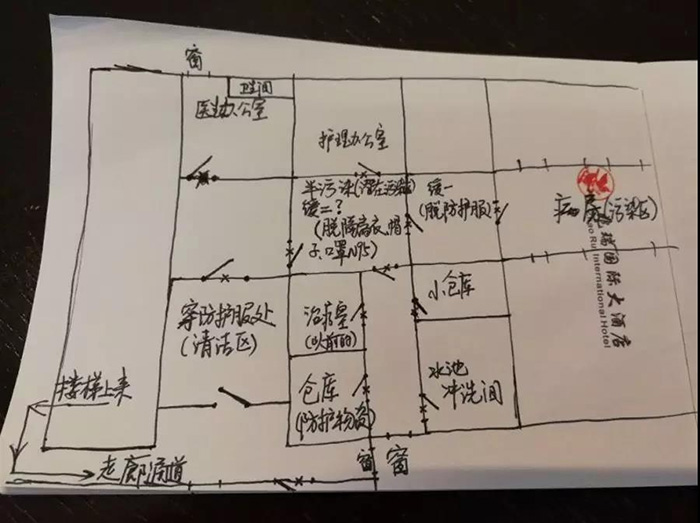 窗
卫生间
医生办公室
护理办公室
半污染(潜在污染)
缓二?
(脱隔离衣,帽
子,口罩N95)
缓一
(脱防护服)
病房(污染区)
瑞国际大酒店
Rui International Hotel
穿防护服处
(清洁区)
治疗室
(以前的)
小仓库
仓库
(防护物资)
水池
冲洗间
楼梯上来
走廊通道
窗
窗